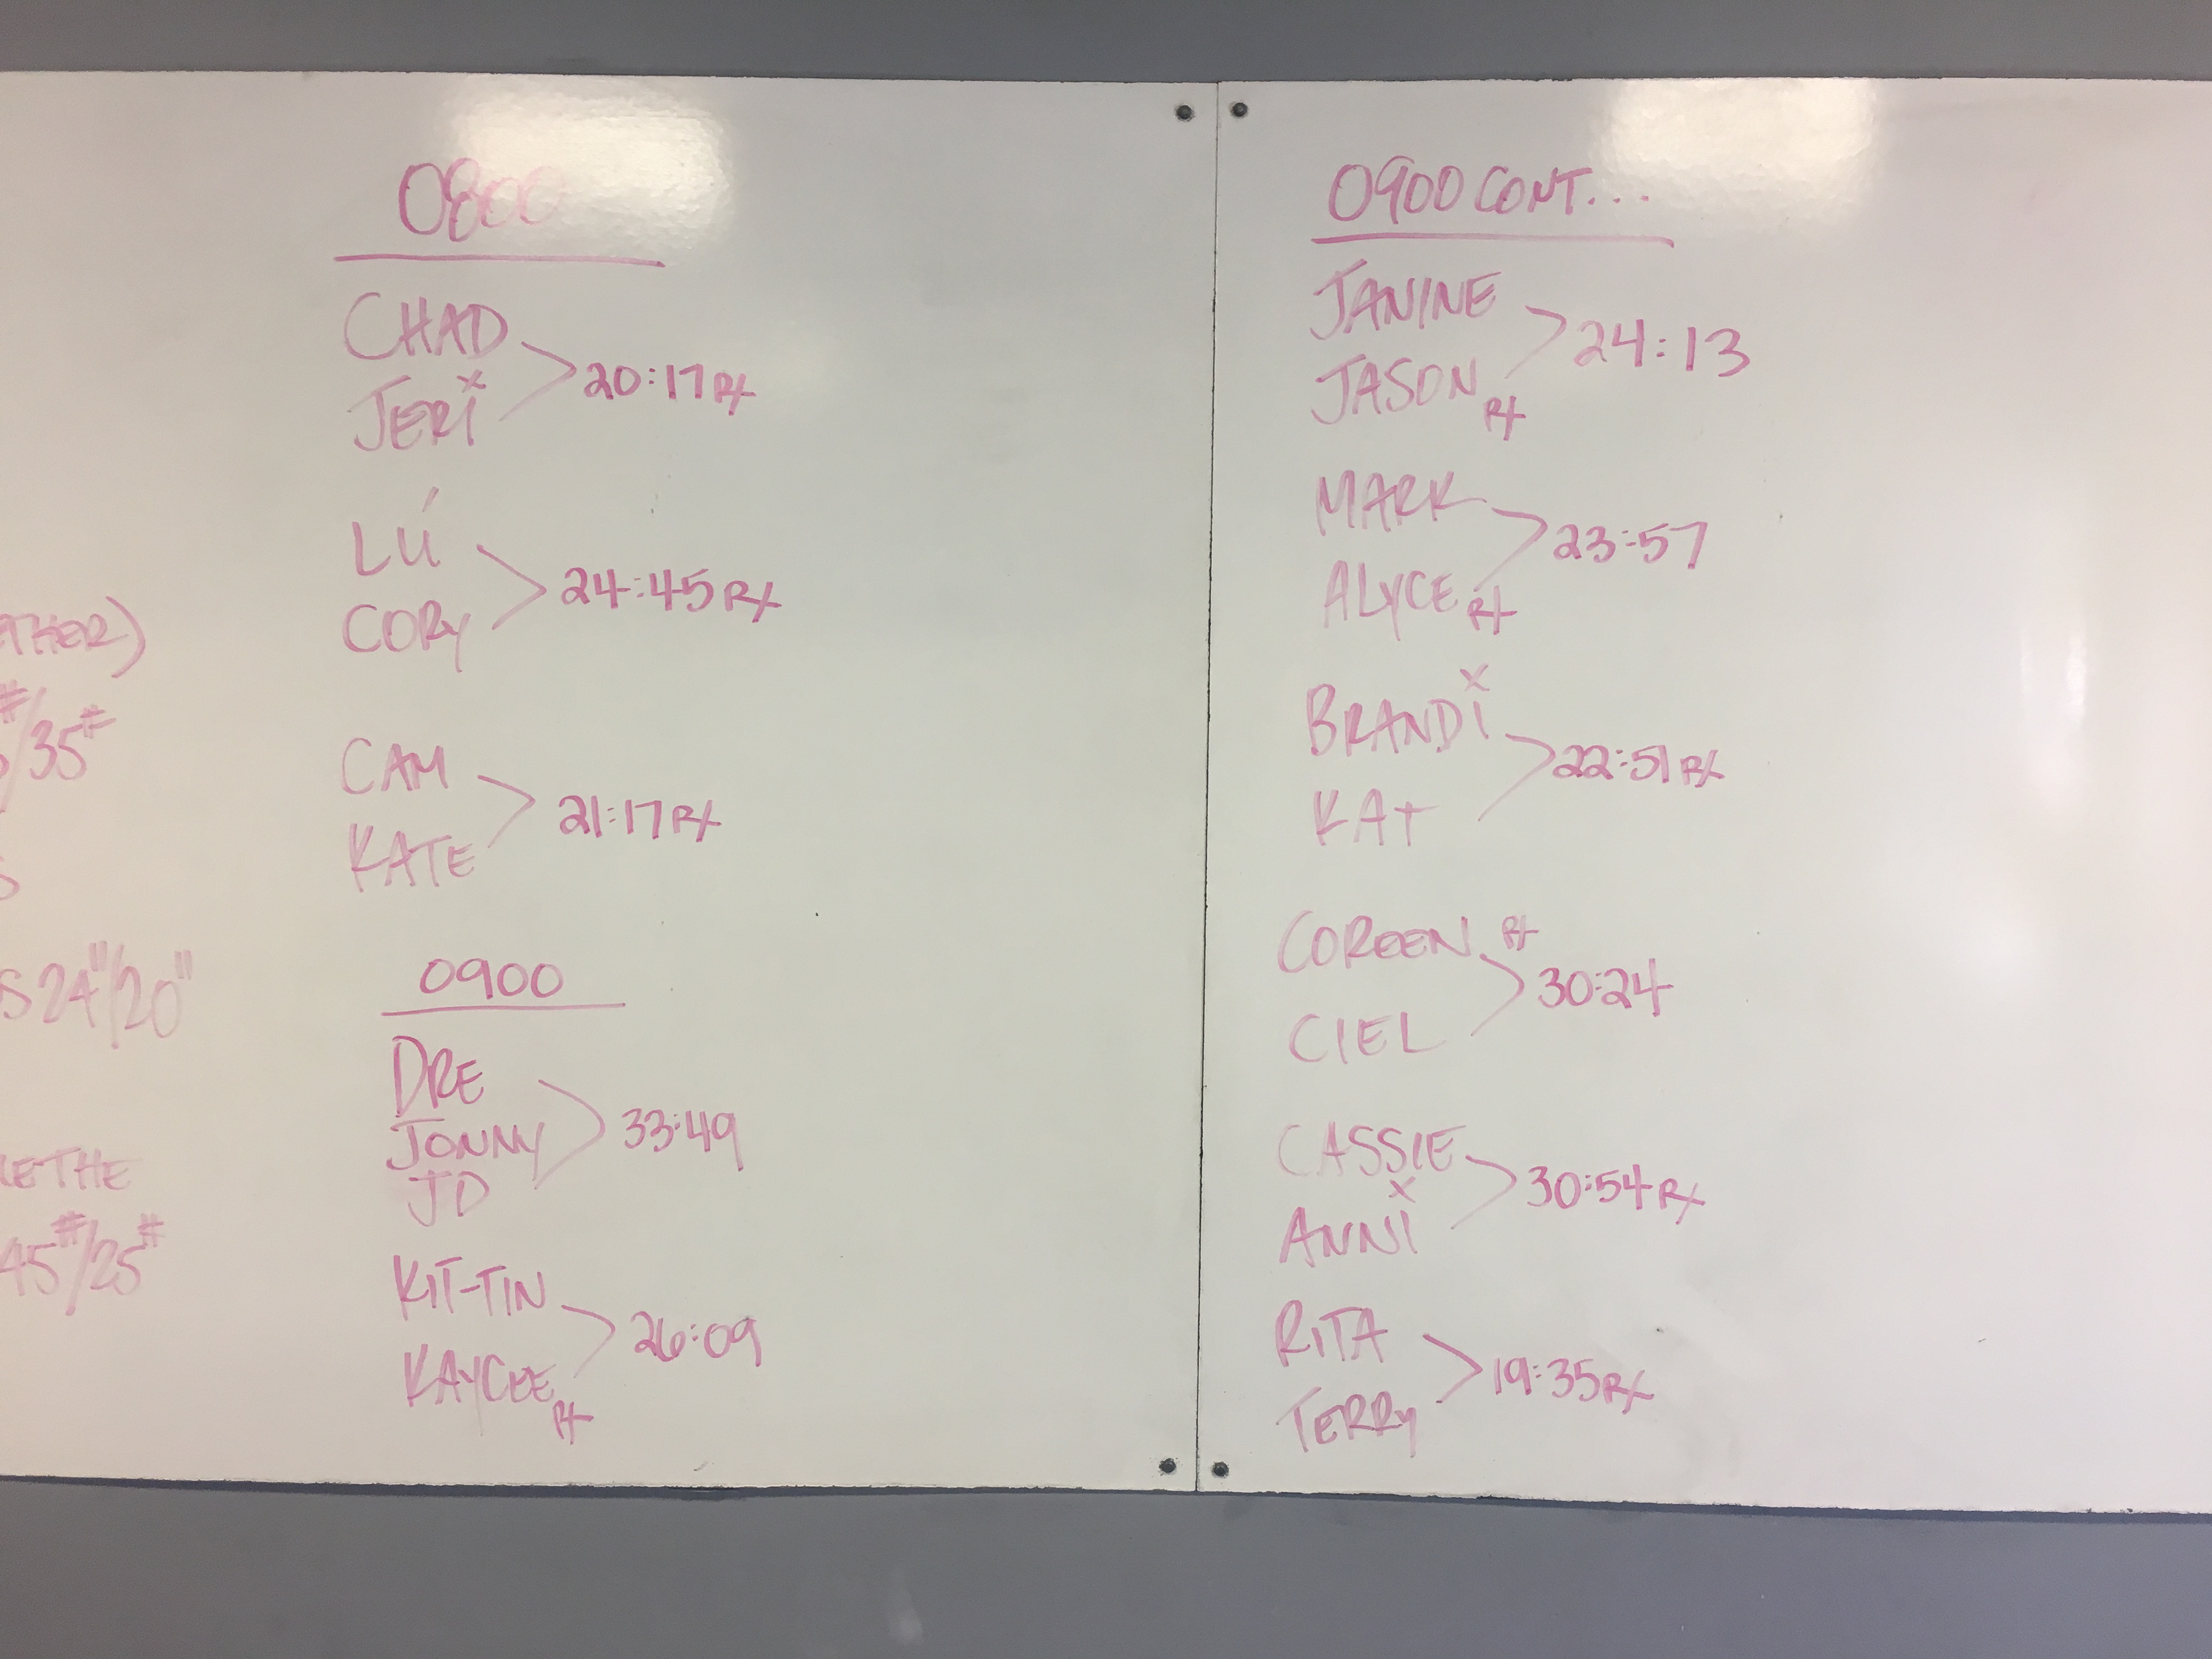 0800
CHAD
JERI
20:17 Rx
LÚ
CORY
24:45 Rx
CAM
KATE
21:17 Rx
0900
DRE
JONNY
JD
33:49
KIT-TIN
KAYCEE Rx
26:09
0900 CONT...
JANINE
JASON Rx
24:13
MARK
ALYCE Rx
23:57
BRANDI
KAT
22:51 Rx
COREEN Rx
CIEL
30:24
CASSIE
ANNI
30:54 Rx
RITA
TERRY
19:35 Rx
#/35#
24"/20"
THE
45#/25#